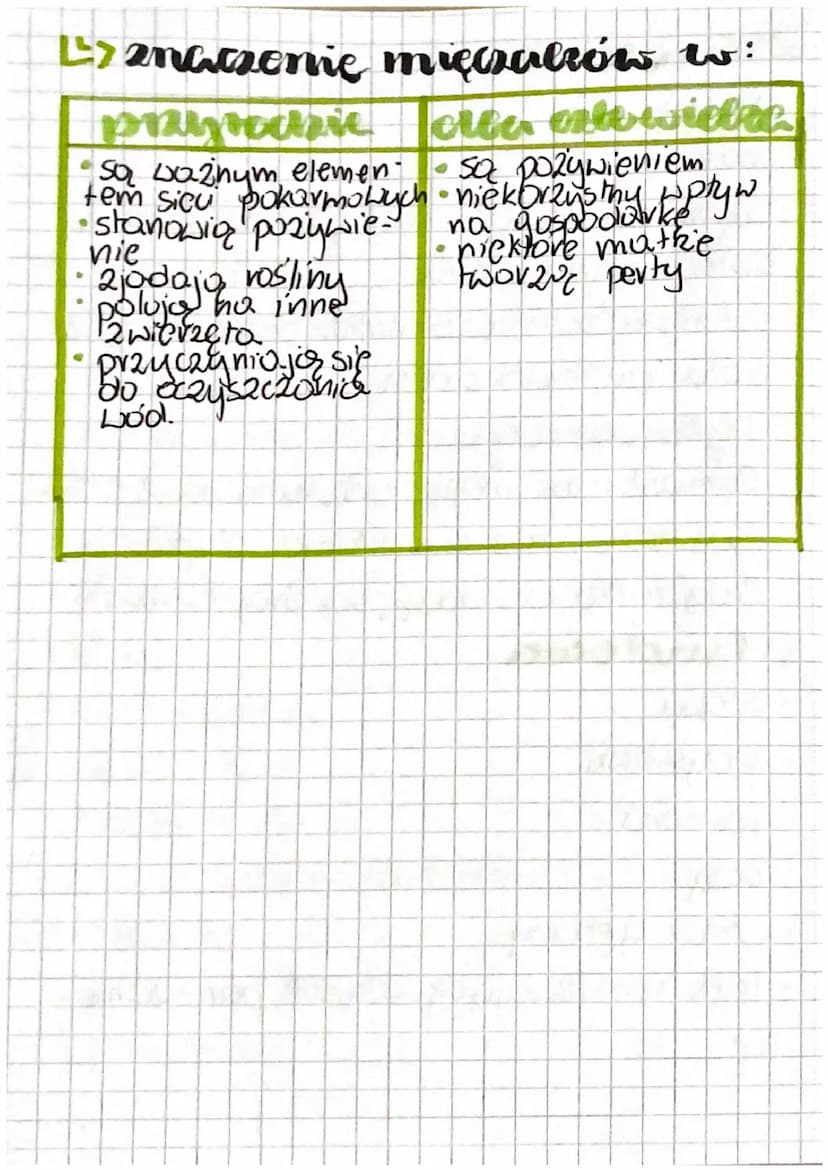 znaczenie mięczaków w:
przyrodzie
dla człowieka
• są ważnym elemen-
tem sieci pokarmowych
• stanowią pożywie-
nie
• zjadają rośliny
• polują na inne
zwierzęta
• przyczyniają się
do oczyszczania
wód.
• są pożywieniem
• niekorzystny wpływ
na gospodarkę
• niektóre małże
tworzą perły